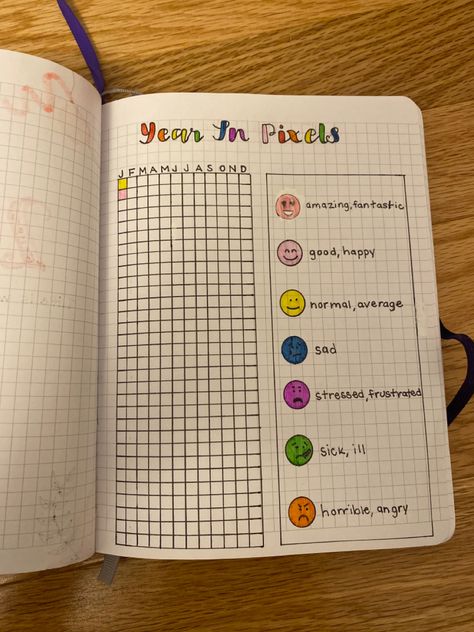 Year In Pixels
J F M A M J J A S O N D
amazing, fantastic
good, happy
normal, average
sad
stressed, frustrated
sick, ill
horrible, angry